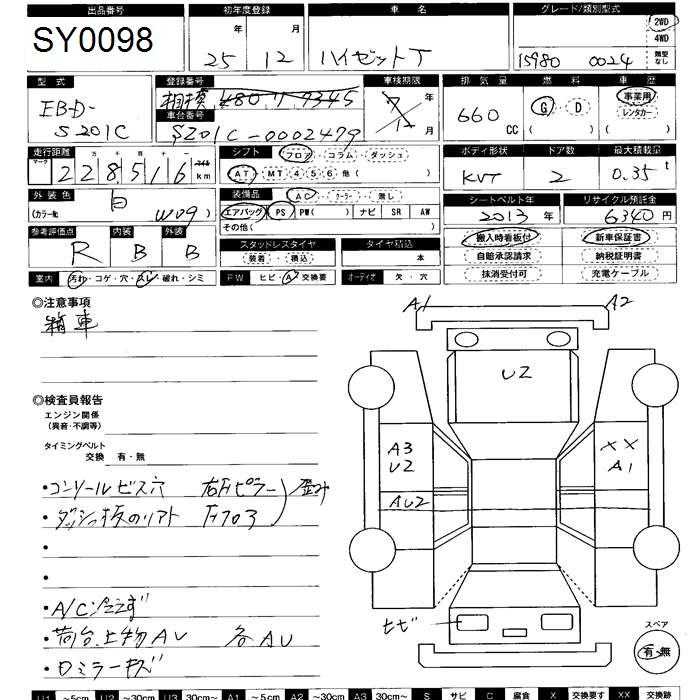 出品番号 初年度登録 車名 グレード/類別型式
SY0098 25年 12月 ハイゼットT 15980 0024 2WD
4WD
類型なし
型式 登録番号 車検期限 排気量 燃料 車歴
EBD-S201C 相模 480 り 9345 年 660CC G・D ( ) 事業用
レンタカー ( )
車台番号
S201C-0002479 月
走行距離 シフト フロア・コラム・ダッシュ ボディ形状 ドア数 最大積載量
十万 万 千 百 十 一 マイル
228516 km AT・MT 4 5 6 他( ) KVT 2 0.35 t
外装色 装備品 AC・クーラー・無し シートベルト年 リサイクル預託金
白 (カラー№ W09) エアバッグ PS PW( ) ナビ SR AW 2013年 6340円
その他( )
参考評価点 内装 外装 スタッドレスタイヤ タイヤ積込 搬入時看板付 新車保証書
R B B 装着・積込 本 自賠承認請求 納税証明書
室内 汚れ・コゲ・穴・スレ・破れ・シミ FW ヒビ・A・交換要 オーディオ 欠・穴 抹消受付可 充電ケーブル
◎注意事項
箱車
A1 A2
U2
◎検査員報告
エンジン関係
(異音・不調等)
タイミングベルト
交換 有・無
A3
U2
XX
A1
AU2
・コンソールビス穴 右Fピラー 歪み
・ダッシュ板のリアト Fフロア
・
・
・A/C冷えず
・荷台、上物AU 各AU
・ロミラーキズ
ヒビ
スペア
有・無
U1 ～5cm U2 ～30cm U3 30cm～ A1 ～5cm A2 ～30cm A3 30cm～ S サビ C 腐食 X 交換要す XX 交換跡